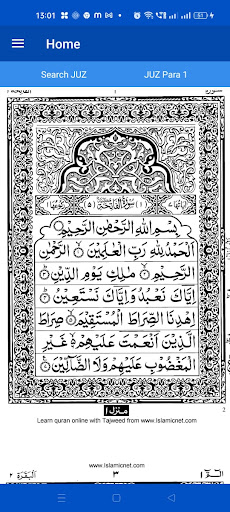 13:01
51
Home
Search JUZ
JUZ Para 1
سُوْرَةُ الْفَاتِحَةِ
بِسْمِ اللّٰهِ الرَّحْمٰنِ الرَّحِيْمِ
اَلْحَمْدُ لِلّٰهِ رَبِّ الْعٰلَمِيْنَ ۝ الرَّحْمٰنِ
الرَّحِيْمِ ۝ مٰلِكِ يَوْمِ الدِّيْنِ ۝
اِيَّاكَ نَعْبُدُ وَاِيَّاكَ نَسْتَعِيْنُ ۝
اِهْدِنَا الصِّرَاطَ الْمُسْتَقِيْمَ ۝ صِرَاطَ
الَّذِيْنَ اَنْعَمْتَ عَلَيْهِمْ ۝ غَيْرِ
الْمَغْضُوْبِ عَلَيْهِمْ وَلَا الضَّآلِّيْنَ ۝
منزل ١
2
Learn quran online with Tajweed from www.Islamicnet.com
www.Islamicnet.com
البقرة ٢
٣
الٓمّٓ ١